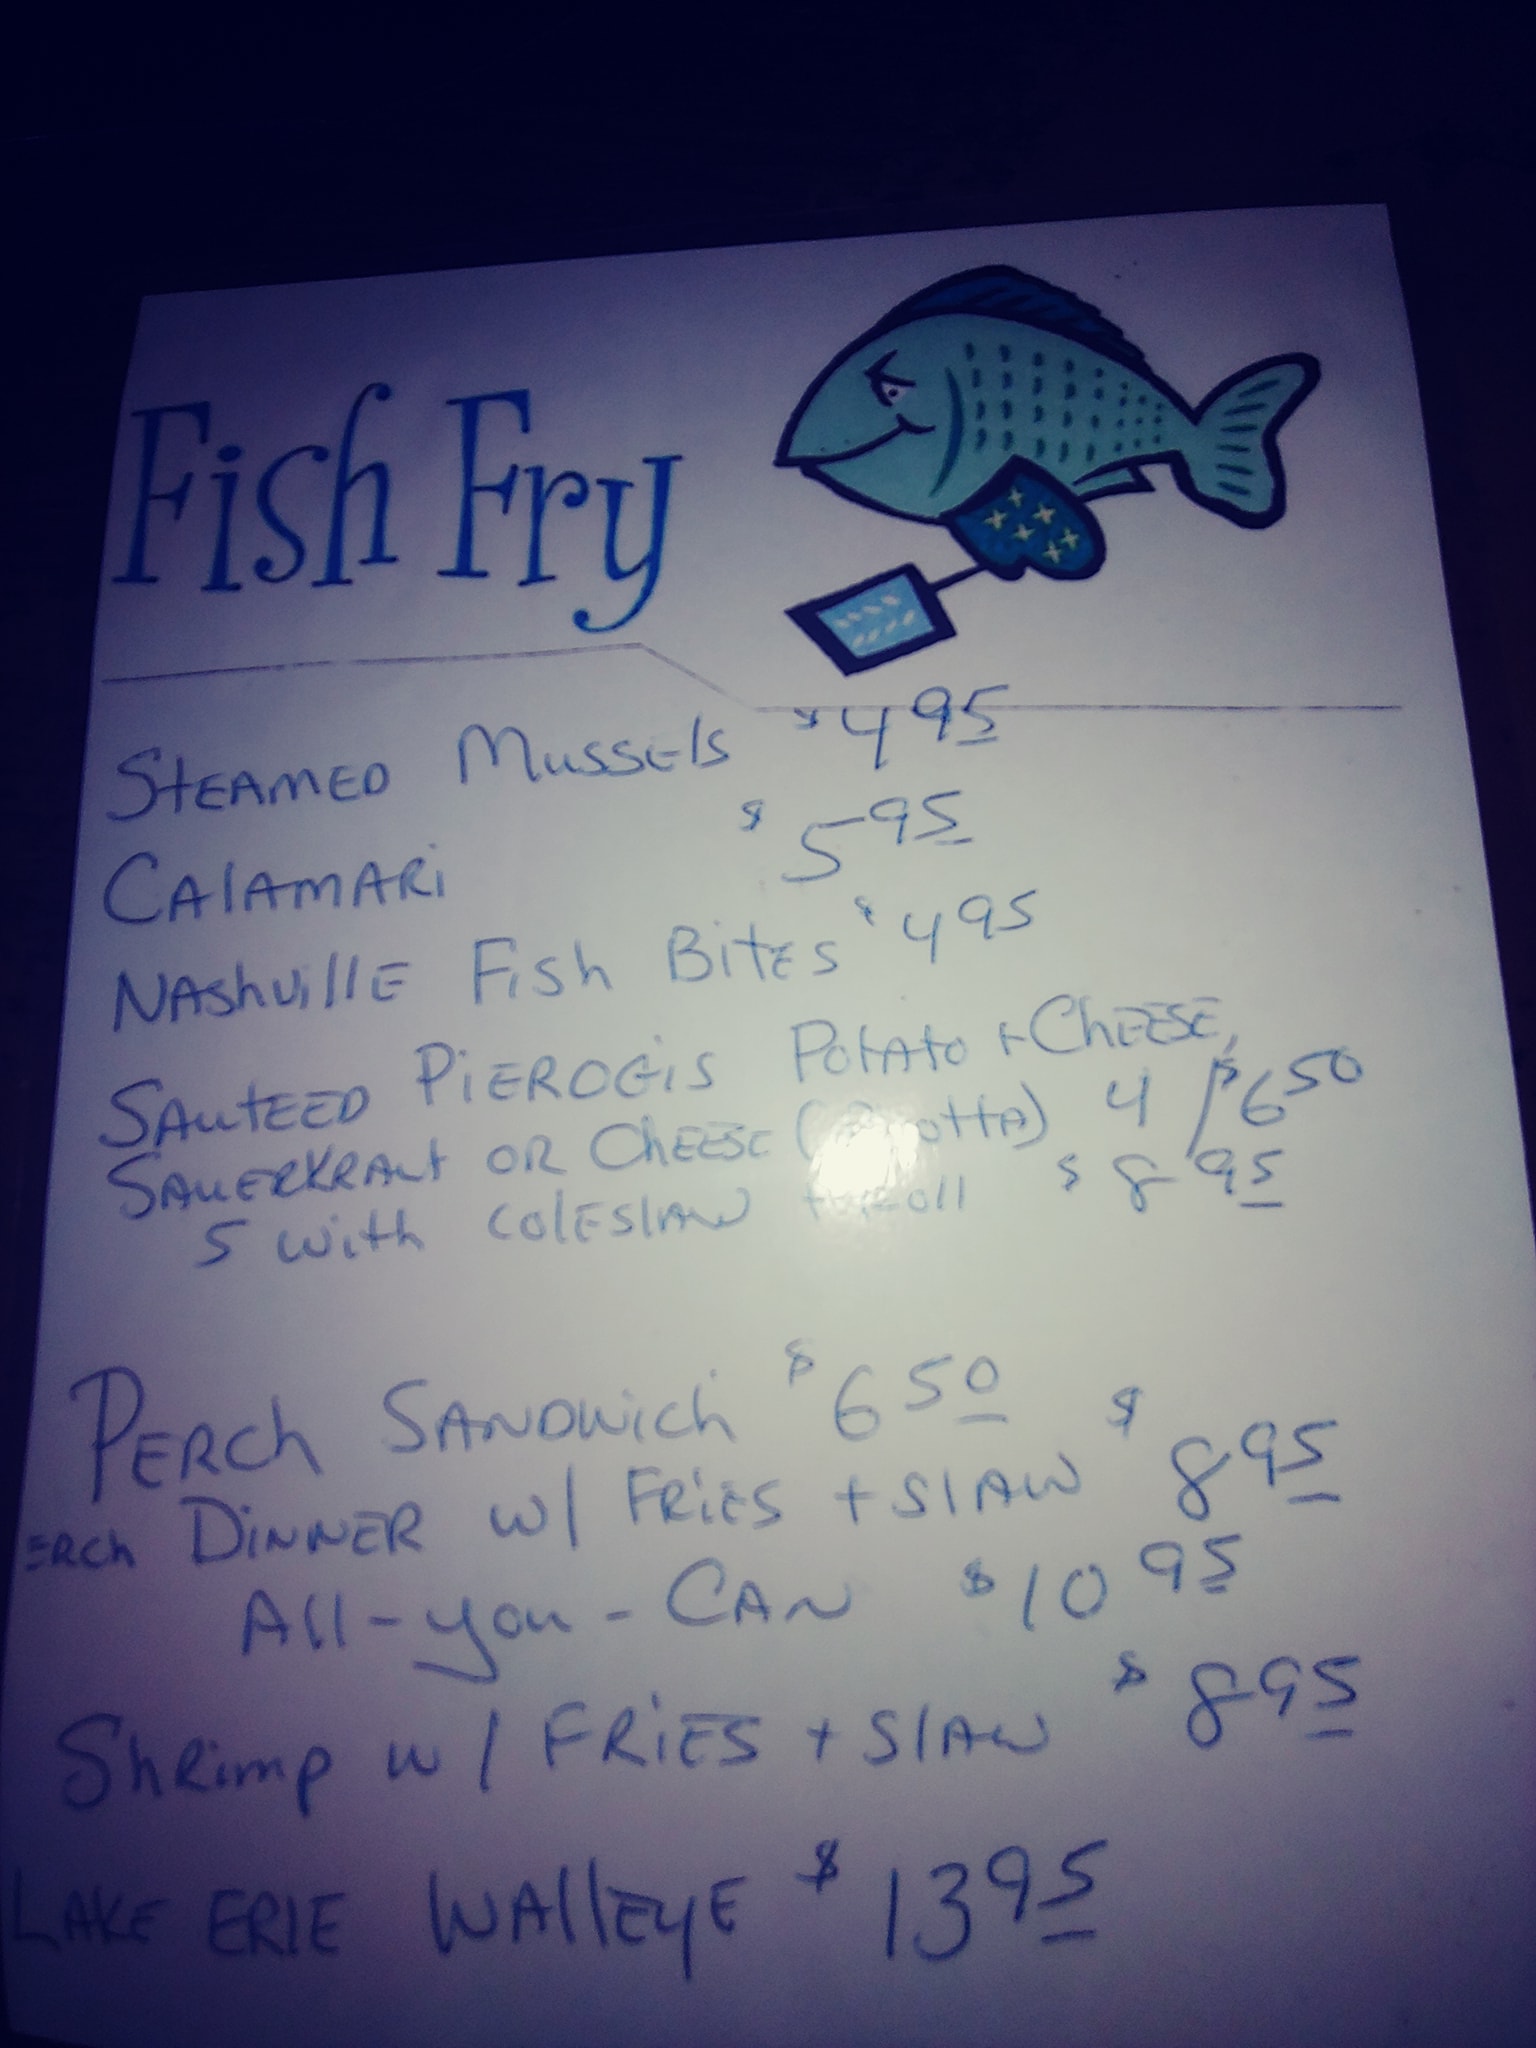 Fish Fry
STEAMED MussEls $4 95
CAlAMARi $5 95
NAShvillE Fish BitEs $4 95
SAuTEED PiEROGiS PotAto + ChEESE,
SAuERKRAut OR ChEESE 4/$6 50
5 with colEslAW + Roll $8 95
PERCh SANDWich $6 50
ERch DiNNER w/ FRiES + SlAW $8 95
All-you-CAN $10 95
ShRimp w/ FRiES + SlAW $8 95
LAKE ERIE WAllEyE $13 95